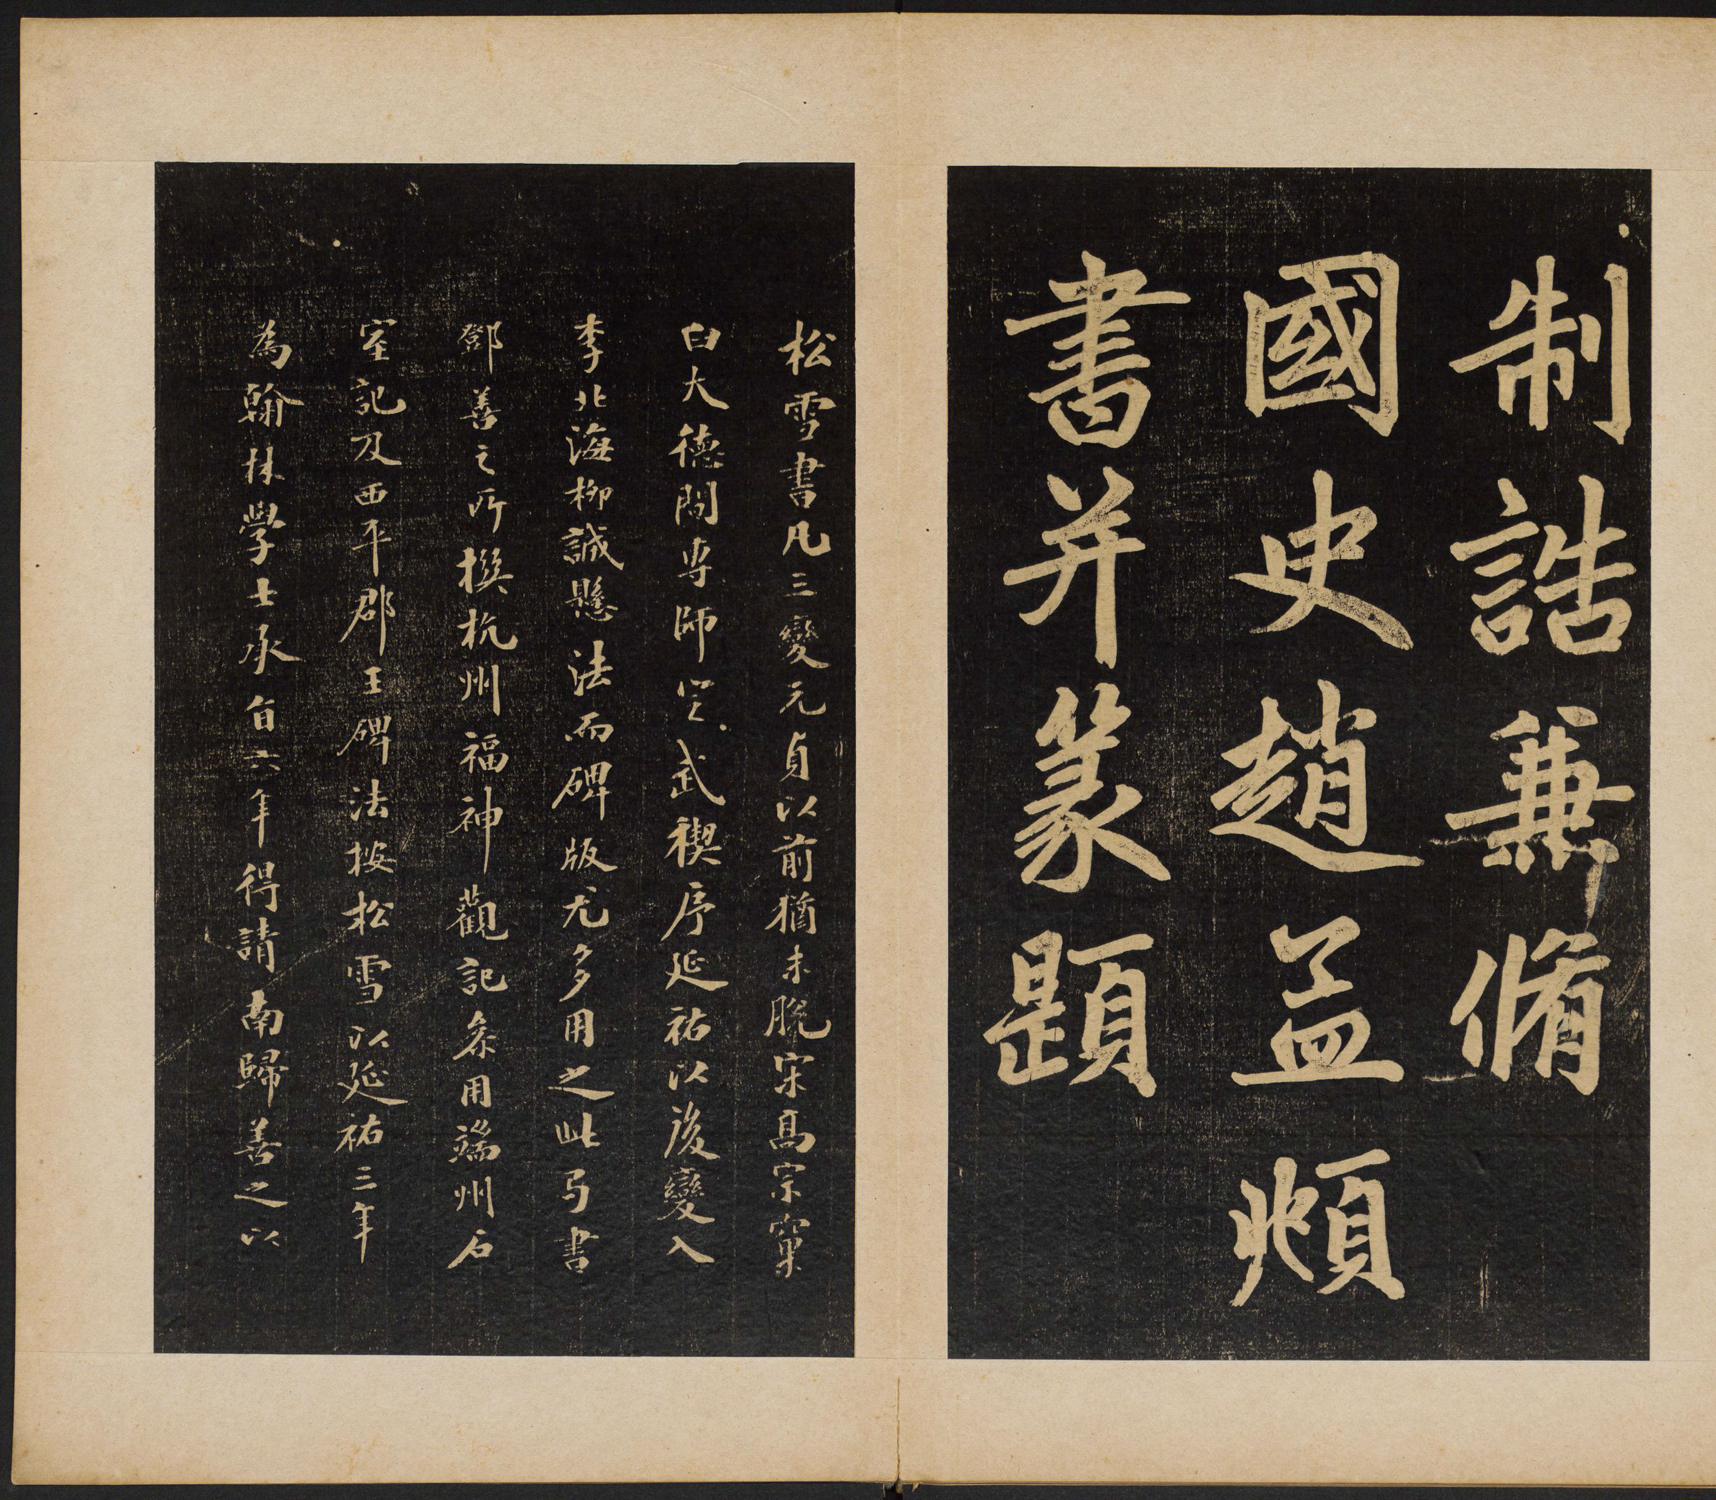 制誥兼脩
國史趙孟頫
書并篆題
松雪書凡三變元貞以前猶未脫宋高宗窠
臼大德間專師定武禊序延祐以後變入
李北海柳誠懸法而碑版尤多用之此弓書
鄧善之所撰杭州福神觀記叅用端州石
室記及西平郡王碑法按松雪以延祐三年
為翰林學士承旨六年得請南歸善之以